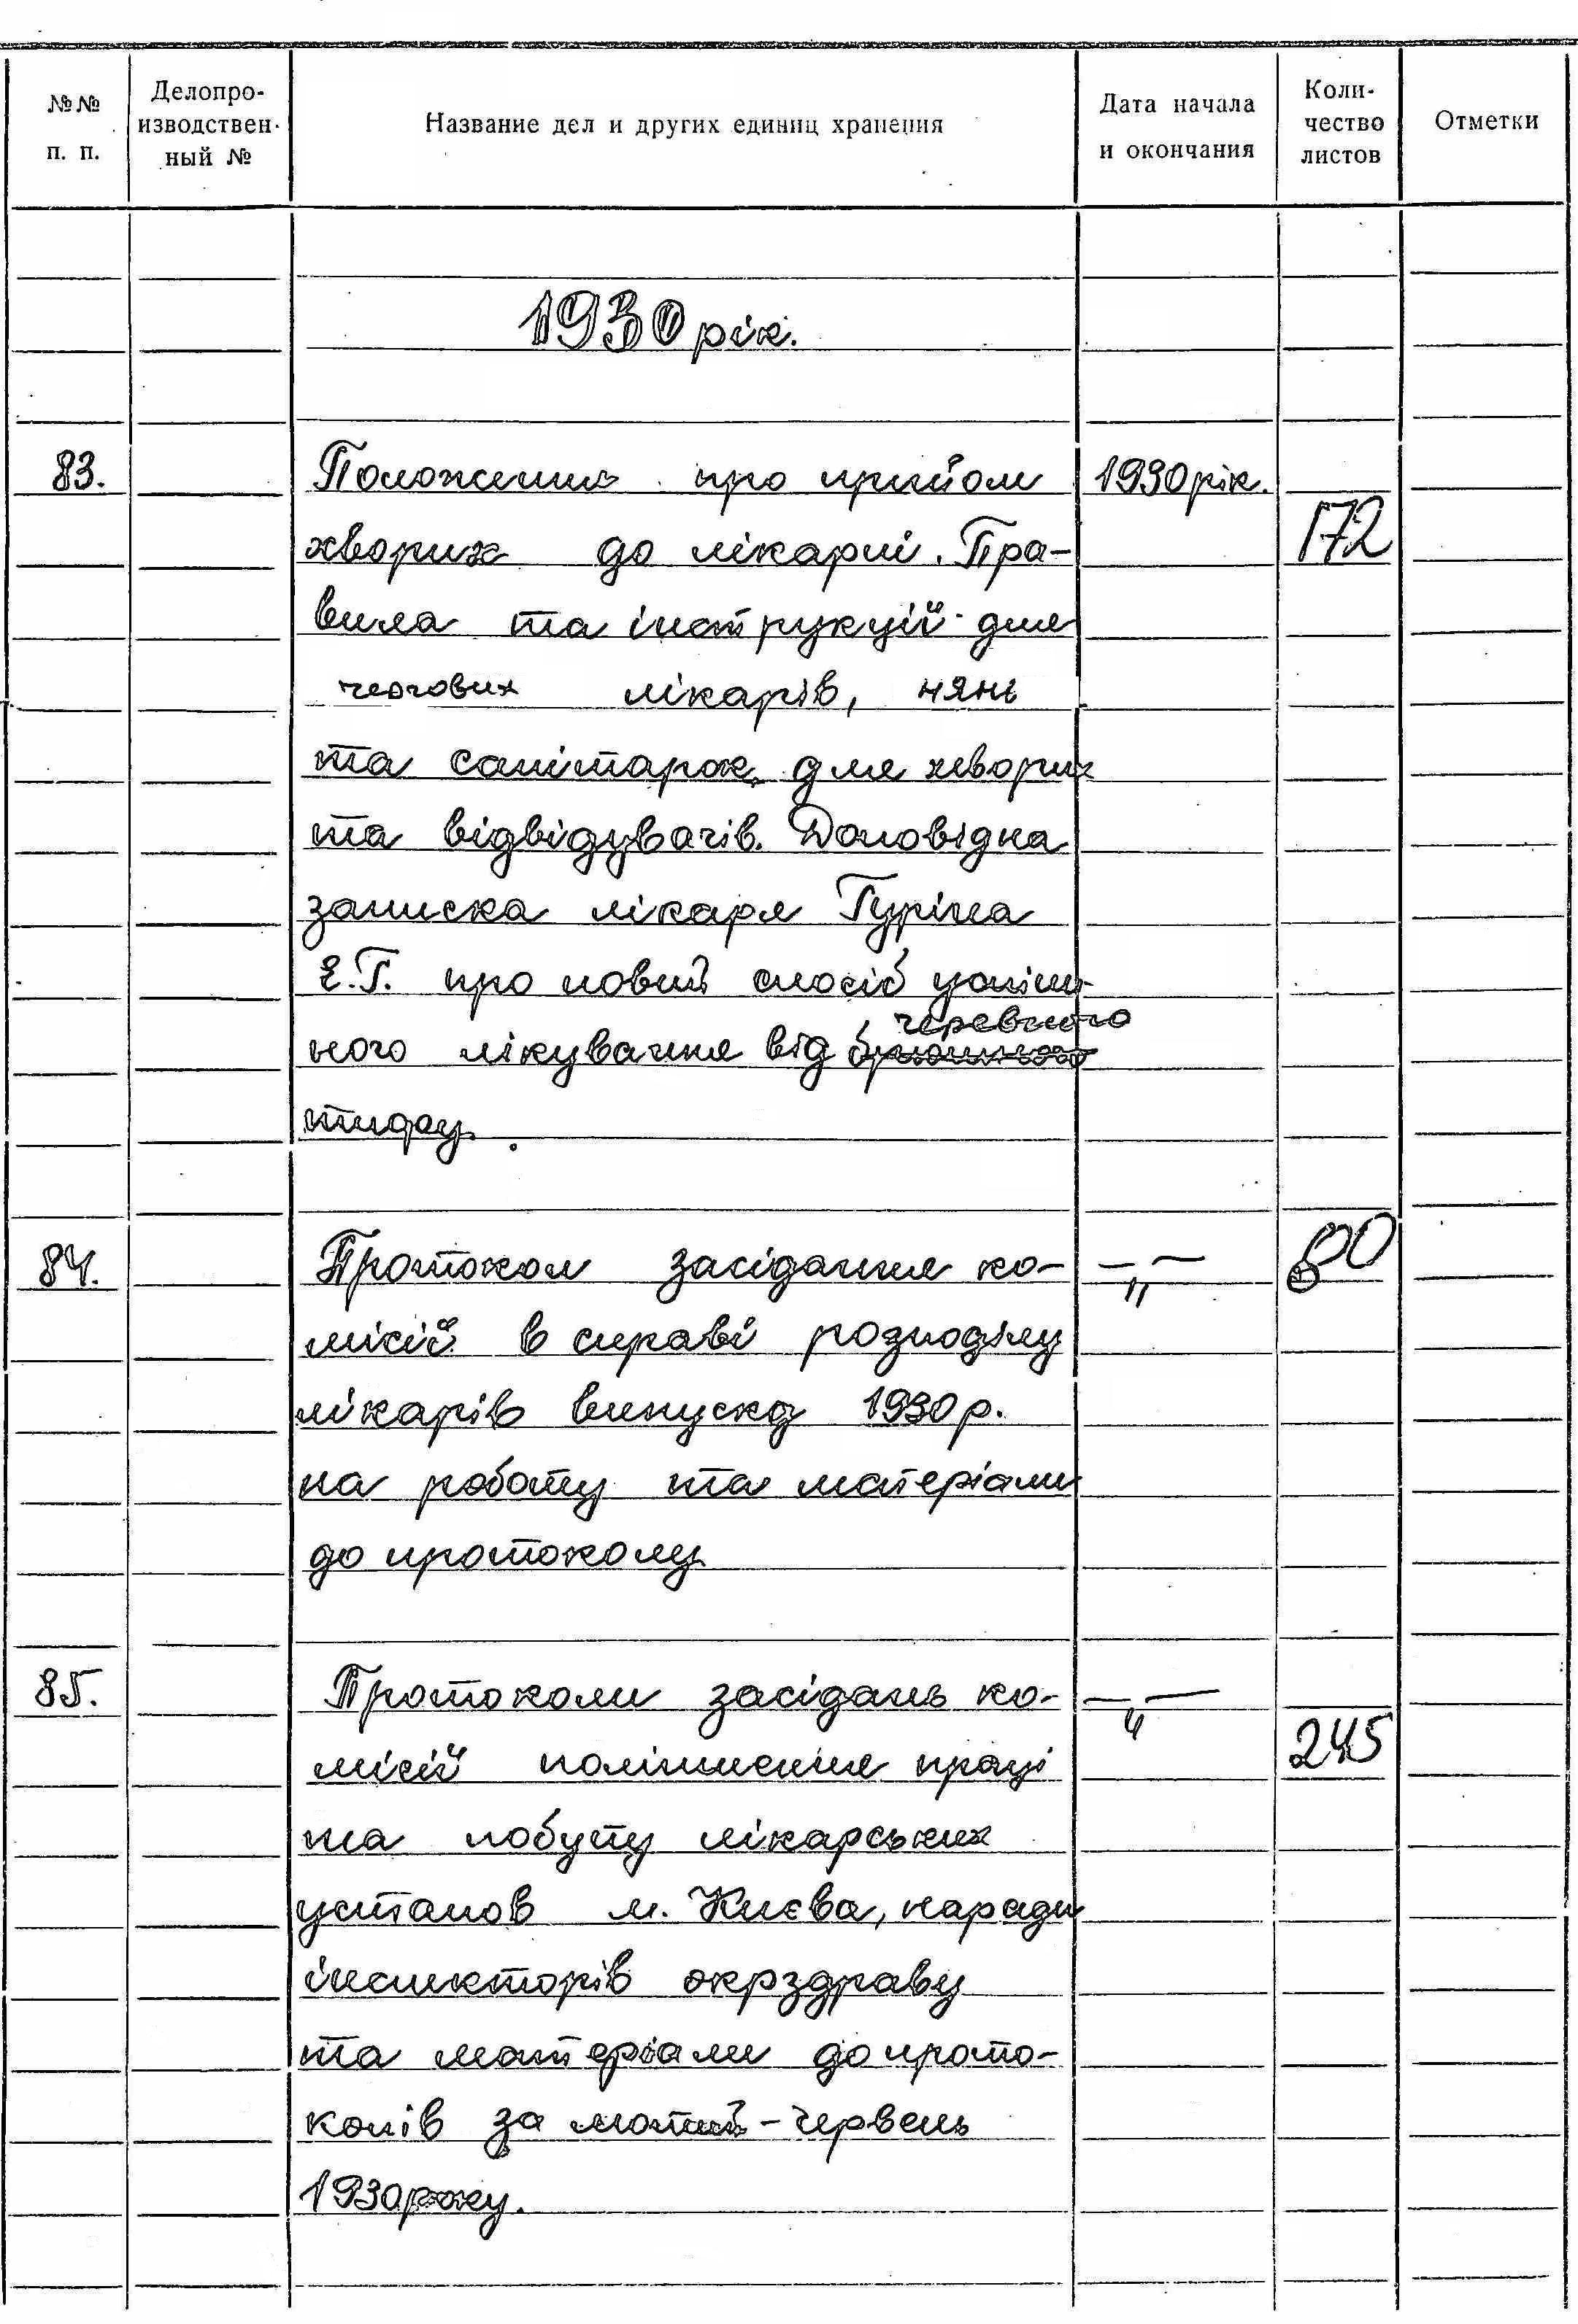 №№ п. п. Делопроизводствен- ный № Название дел и других единиц хранения Дата начала и окончания Коли- чество листов Отметки
1930 рік.
83. Положення про прийом 1930 рік.
хворих до лікарні. Пра- 172
вила та інструкції для
чергових лікарів, нянь
та санітарок, для хворих
та відвідувачів. Доповідна
записка лікаря Гуріна
Е.Г. про новий спосіб успіш-
черевного
ного лікування від брюшного
тифу.
84. Протокол засідання ко- —„— 80
місії в справі розподілу
лікарів випуску 1930 р.
на роботу та матеріали
до протоколу
85. Протоколи засідань ко- —„—
місій поліпшення праці 245
та побуту лікарських
установ м. Києва, наради
інспекторів окрздраву
та матеріали до прото-
колів за лютий - червень
1930 року.